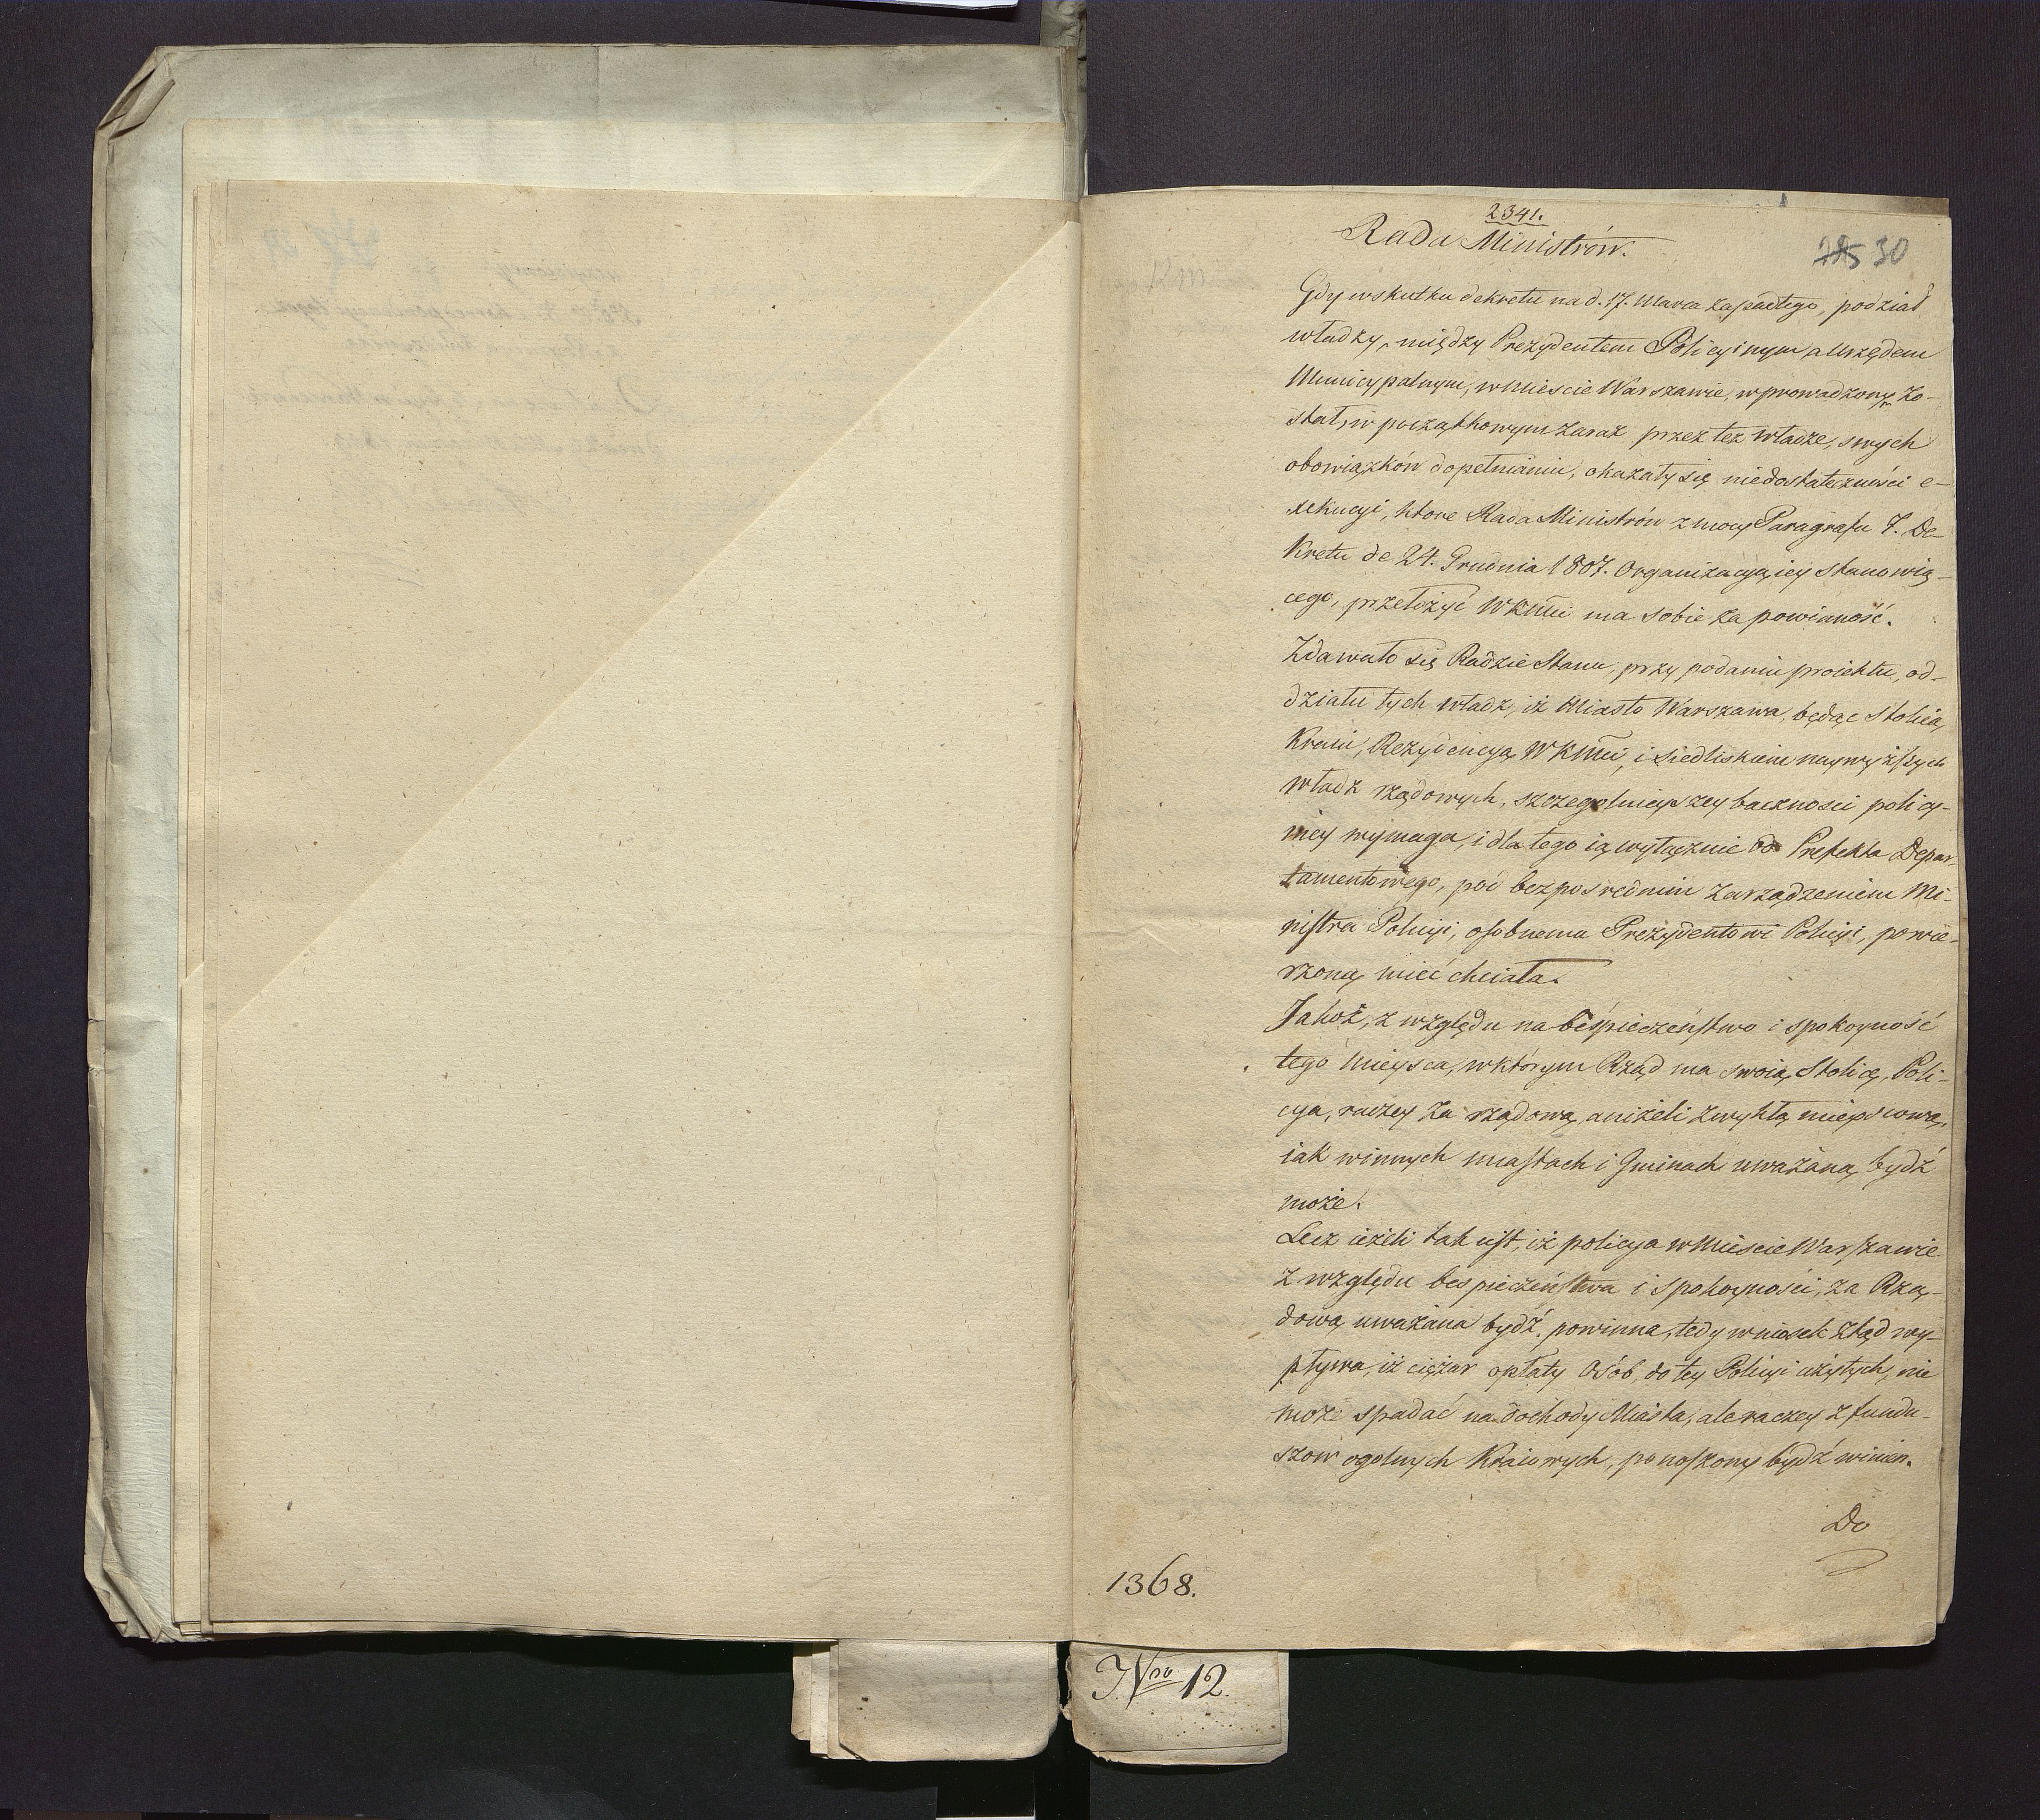 2341.
Rada Ministrów.
30
Gdy w skutku dekretu na d. 17. Marca zapadłego, podział
władzy, między Prezydentem Policyinym a Urzędem
Municypalnym, w Mieście Warszawie, wprowadzony zo-
stał, w początkowym zaraz przez też władze, swych
obowiązków dopełnianiu, okazały się niedostateczności e-
xekucyi, ktore Rada Ministrów z mocy Paragrafu 7. De-
kretu de 24. Grudnia 1807. Organizacyą iey stanowią-
cego, przełożyć WKMci ma sobie za powinność.
Zdawało się Radzie Stanu, przy podaniu proiektu, od-
działu tych władz, iż Miasto Warszawa, będąc Stolicą
Kraiu, Rezydencyą WKMci, i siedliskiem naywyższych
władz rządowych, szczegolnieyszey bacznosci policy-
iney wymaga, i dla tego ią wyłącznie od Prefekta Depar-
tamentowego, pod bezposrednim zarządzeniem Mi-
nistra Policyi, osobnemu Prezydentowi Policyi, powie-
rzoną mieć chciała.
Jakoż, z względu na bespieczeństwo i spokoyność
tego mieysca, w którym Rząd ma swoią Stolicę, Poli-
cya, raczey za rządową, aniżeli zwykłą mieyscową,
iak w innych miastach i Gminach uważaną bydź
może.
Lecz ieżeli tak iest, iż policya w Mieście Warszawie
z względu bespieczeństwa i spokoyności, za Rzą-
dową uważana bydź powinna, tedy wniosek ztąd wy-
pływa, iż ciężar opłaty Osób, do tey Policyi użytych, nie
może spadać na dochody Miasta, ale raczey z fundu-
szow ogolnych Kraiowych, ponoszony bydź winien.
Do
1368.
Nro 12.